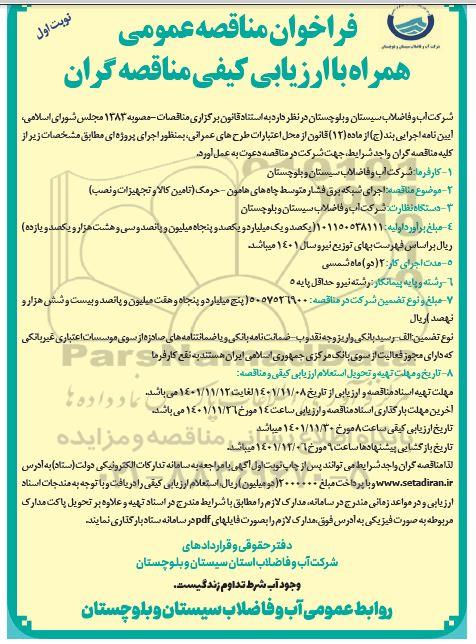 نوبت اول
فراخوان مناقصه عمومی
همراه با ارزیابی کیفی مناقصه گران
شرکت آب و فاضلاب سیستان و بلوچستان
شرکت آب و فاضلاب سیستان و بلوچستان در نظر دارد به استناد قانون برگزاری مناقصات -مصوبه ۱۳۸۳ مجلس شورای اسلامی،
آیین نامه اجرایی بند (ج) از ماده (۱۲) قانون از محل اعتبارات طرح های عمرانی، بمنظور اجرای پروژه ای مطابق مشخصات زیر از
کلیه مناقصه گران واجد شرایط، جهت شرکت در مناقصه دعوت به عمل آورد.
۱- کارفرما: شرکت آب و فاضلاب سیستان و بلوچستان
۲-موضوع مناقصه: اجرای شبکه برق فشار متوسط چاه های هامون - حرمک (تامین کالا و تجهیزات و نصب)
۳- دستگاه نظارت: شرکت آب و فاضلاب سیستان و بلوچستان
۴- مبلغ برآورد اولیه: ۱۰۱۱۵۰۵۳۸۱۱۱ (یکصد و یک میلیارد و یکصد و پنجاه میلیون و پانصد و سی و هشت هزار و یکصد و یازده)
ریال بر اساس فهرست بهای توزیع نیرو سال ۱۴۰۱ میباشد.
۵-مدت اجرای کار: ۲ (دو) ماه شمسی
۶-رشته و پایه پیمانکار: رشته نیرو حداقل پایه ۵
۷-مبلغ و نوع تضمین شرکت در مناقصه: ۵۰۵۷۵۲۶۹۰۰ (پنج میلیارد و پنجاه و هفت میلیون و پانصد و بیست و شش هزار و
نهصد) ریال
نوع تضمین: الف-رسید بانکی واریز وجه نقد ب-ضمانت نامه بانکی و یا ضمانتنامه های صادره از سوی موسسات اعتباری غیر بانکی
که دارای مجوز فعالیت از سوی بانک مرکزی جمهوری اسلامی ایران هستند به نفع کارفرما
۸- تاریخ و مهلت تهیه و تحویل استعلام ارزیابی کیفی و مناقصه:
مهلت تهیه اسناد مناقصه و ارزیابی از تاریخ ۱۴۰۱/۱۱/۰۸ لغایت ۱۴۰۱/۱۱/۱۲ می باشد.
آخرین مهلت بارگذاری اسناد مناقصه و ارزیابی ساعت ۱۴ مورخ ۱۴۰۱/۱۱/۲۶ می باشد.
تاریخ ارزیابی کیفی ساعت ۸ مورخ ۱۴۰۱/۱۱/۳۰ میباشد
تاریخ بازگشایی پیشنهادها ساعت ۹ مورخ ۱۴۰۱/۱۲/۰۶ میباشد.
لذا مناقصه گران واجد شرایط می توانند پس از چاپ نوبت اول آگهی با مراجعه به سامانه تدارکات الکترونیکی دولت (ستاد) به آدرس
www.setadiran.ir و با پرداخت مبلغ ۲۰۰۰۰۰۰ (دو میلیون) ریال، استعلام ارزیابی کیفی را دریافت و با توجه به مندرجات اسناد
ارزیابی و در مواعد زمانی مندرج در سامانه، مدارک لازم را مطابق با شرایط مندرج در اسناد تهیه و علاوه بر تحویل پاکت مدارک
مربوطه به صورت فیزیکی به آدرس فوق، مدارک لازم را بصورت فایلهای pdf در سامانه ستاد بارگذاری نمایند.
دفتر حقوقی و قراردادهای
شرکت آب و فاضلاب استان سیستان و بلوچستان
وجود آب شرط تداوم زندگیست.
روابط عمومی آب و فاضلاب سیستان و بلوچستان